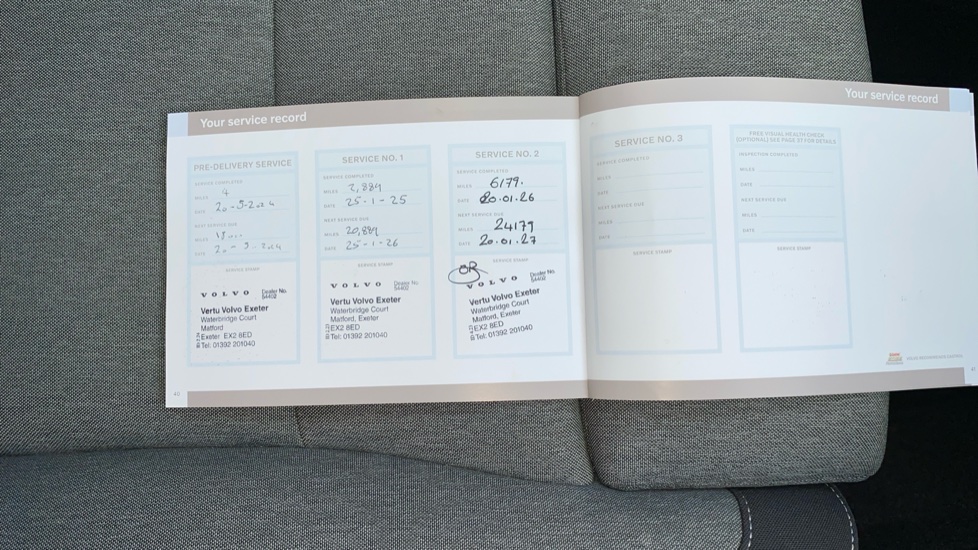 Your service record
PRE-DELIVERY SERVICE
SERVICE COMPLETED
MILES 4
DATE 20-5-2024
NEXT SERVICE DUE
MILES
DATE
SERVICE STAMP
VOLVO Dealer No. 54402
Vertu Volvo Exeter
Waterbridge Court
Matford
Exeter EX2 8ED
Tel: 01392 201040
SERVICE NO. 1
SERVICE COMPLETED
MILES 2,889
DATE 25-1-25
NEXT SERVICE DUE
MILES 20,889
DATE 25-1-26
SERVICE STAMP
VOLVO Dealer No. 54402
Vertu Volvo Exeter
Waterbridge Court
Matford, Exeter
EX2 8ED
Tel: 01392 201040
SERVICE NO. 2
SERVICE COMPLETED
MILES 6179.
DATE 20.01.26
NEXT SERVICE DUE
MILES 24179
DATE 20.01.27
SERVICE STAMP
VOLVO Dealer No. 54402
Vertu Volvo Exeter
Waterbridge Court
Matford, Exeter
EX2 8ED
Tel: 01392 201040
42
Your service record
SERVICE NO. 3
SERVICE COMPLETED
MILES
DATE
NEXT SERVICE DUE
MILES
DATE
SERVICE STAMP
FREE VISUAL HEALTH CHECK
(OPTIONAL) SEE PAGE 37 FOR DETAILS
INSPECTION COMPLETED
MILES
DATE
NEXT SERVICE DUE
MILES
DATE
SERVICE STAMP